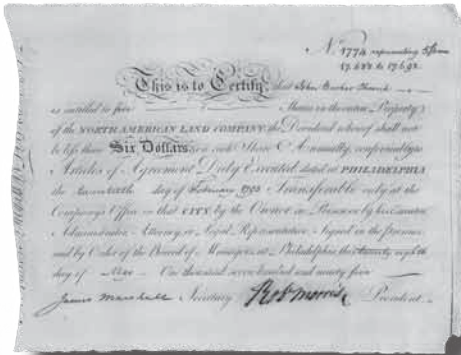 No. 1774 representing from
17.688 to 17.692
This is to Certify, that John Barker Church
is entitled to five Shares in the entire Property
of the NORTH AMERICAN LAND COMPANY; the Dividend whereof shall not
be less than Six Dollars on each Share Annually, conformably to
Articles of Agreement Duly Executed, dated at PHILADELPHIA
the twentieth day of February 1795 Transferable only at the
Company's Office in that CITY by the Owner in Person or by his Executor
Administrator Attorney or Legal Representative Signed in the presence
and by Order of the Board of Managers at Philadelphia this twenty eighth
day of One thousand seven hundred and ninety five
James Marshall Secretary Robt Morris President